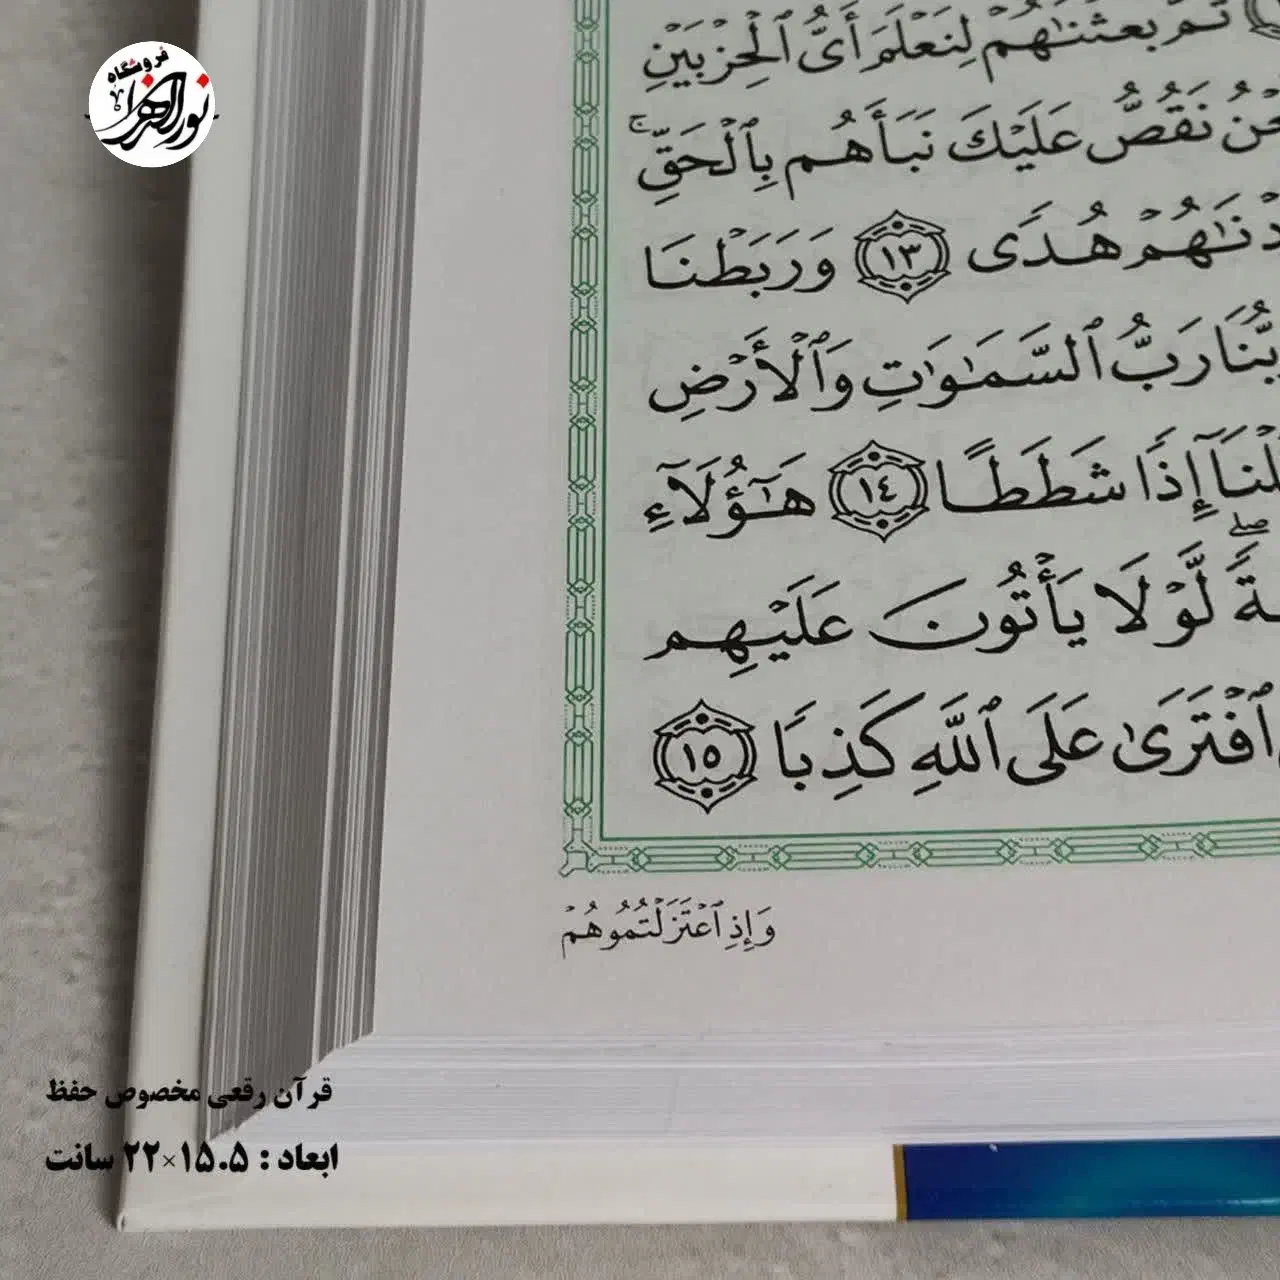 فروشگاه
نورالزهرا
ثُمَّ بَعَثْنَٰهُمْ لِنَعْلَمَ أَىُّ ٱلْحِزْبَيْنِ
نَقُصُّ عَلَيْكَ نَبَأَهُم بِٱلْحَقِّ ۚ
هُدًى ١٣ وَرَبَطْنَا
رَبُّ ٱلسَّمَٰوَٰتِ وَٱلْأَرْضِ
إِذًا شَطَطًا ١٤ هَٰٓؤُلَآءِ
لَّوْلَا يَأْتُونَ عَلَيْهِم
ٱفْتَرَىٰ عَلَى ٱللَّهِ كَذِبًا ١٥
وَإِذِ ٱعْتَزَلْتُمُوهُمْ
قرآن رقعی مخصوص حفظ
ابعاد : ۱۵.۵×۲۲ سانت